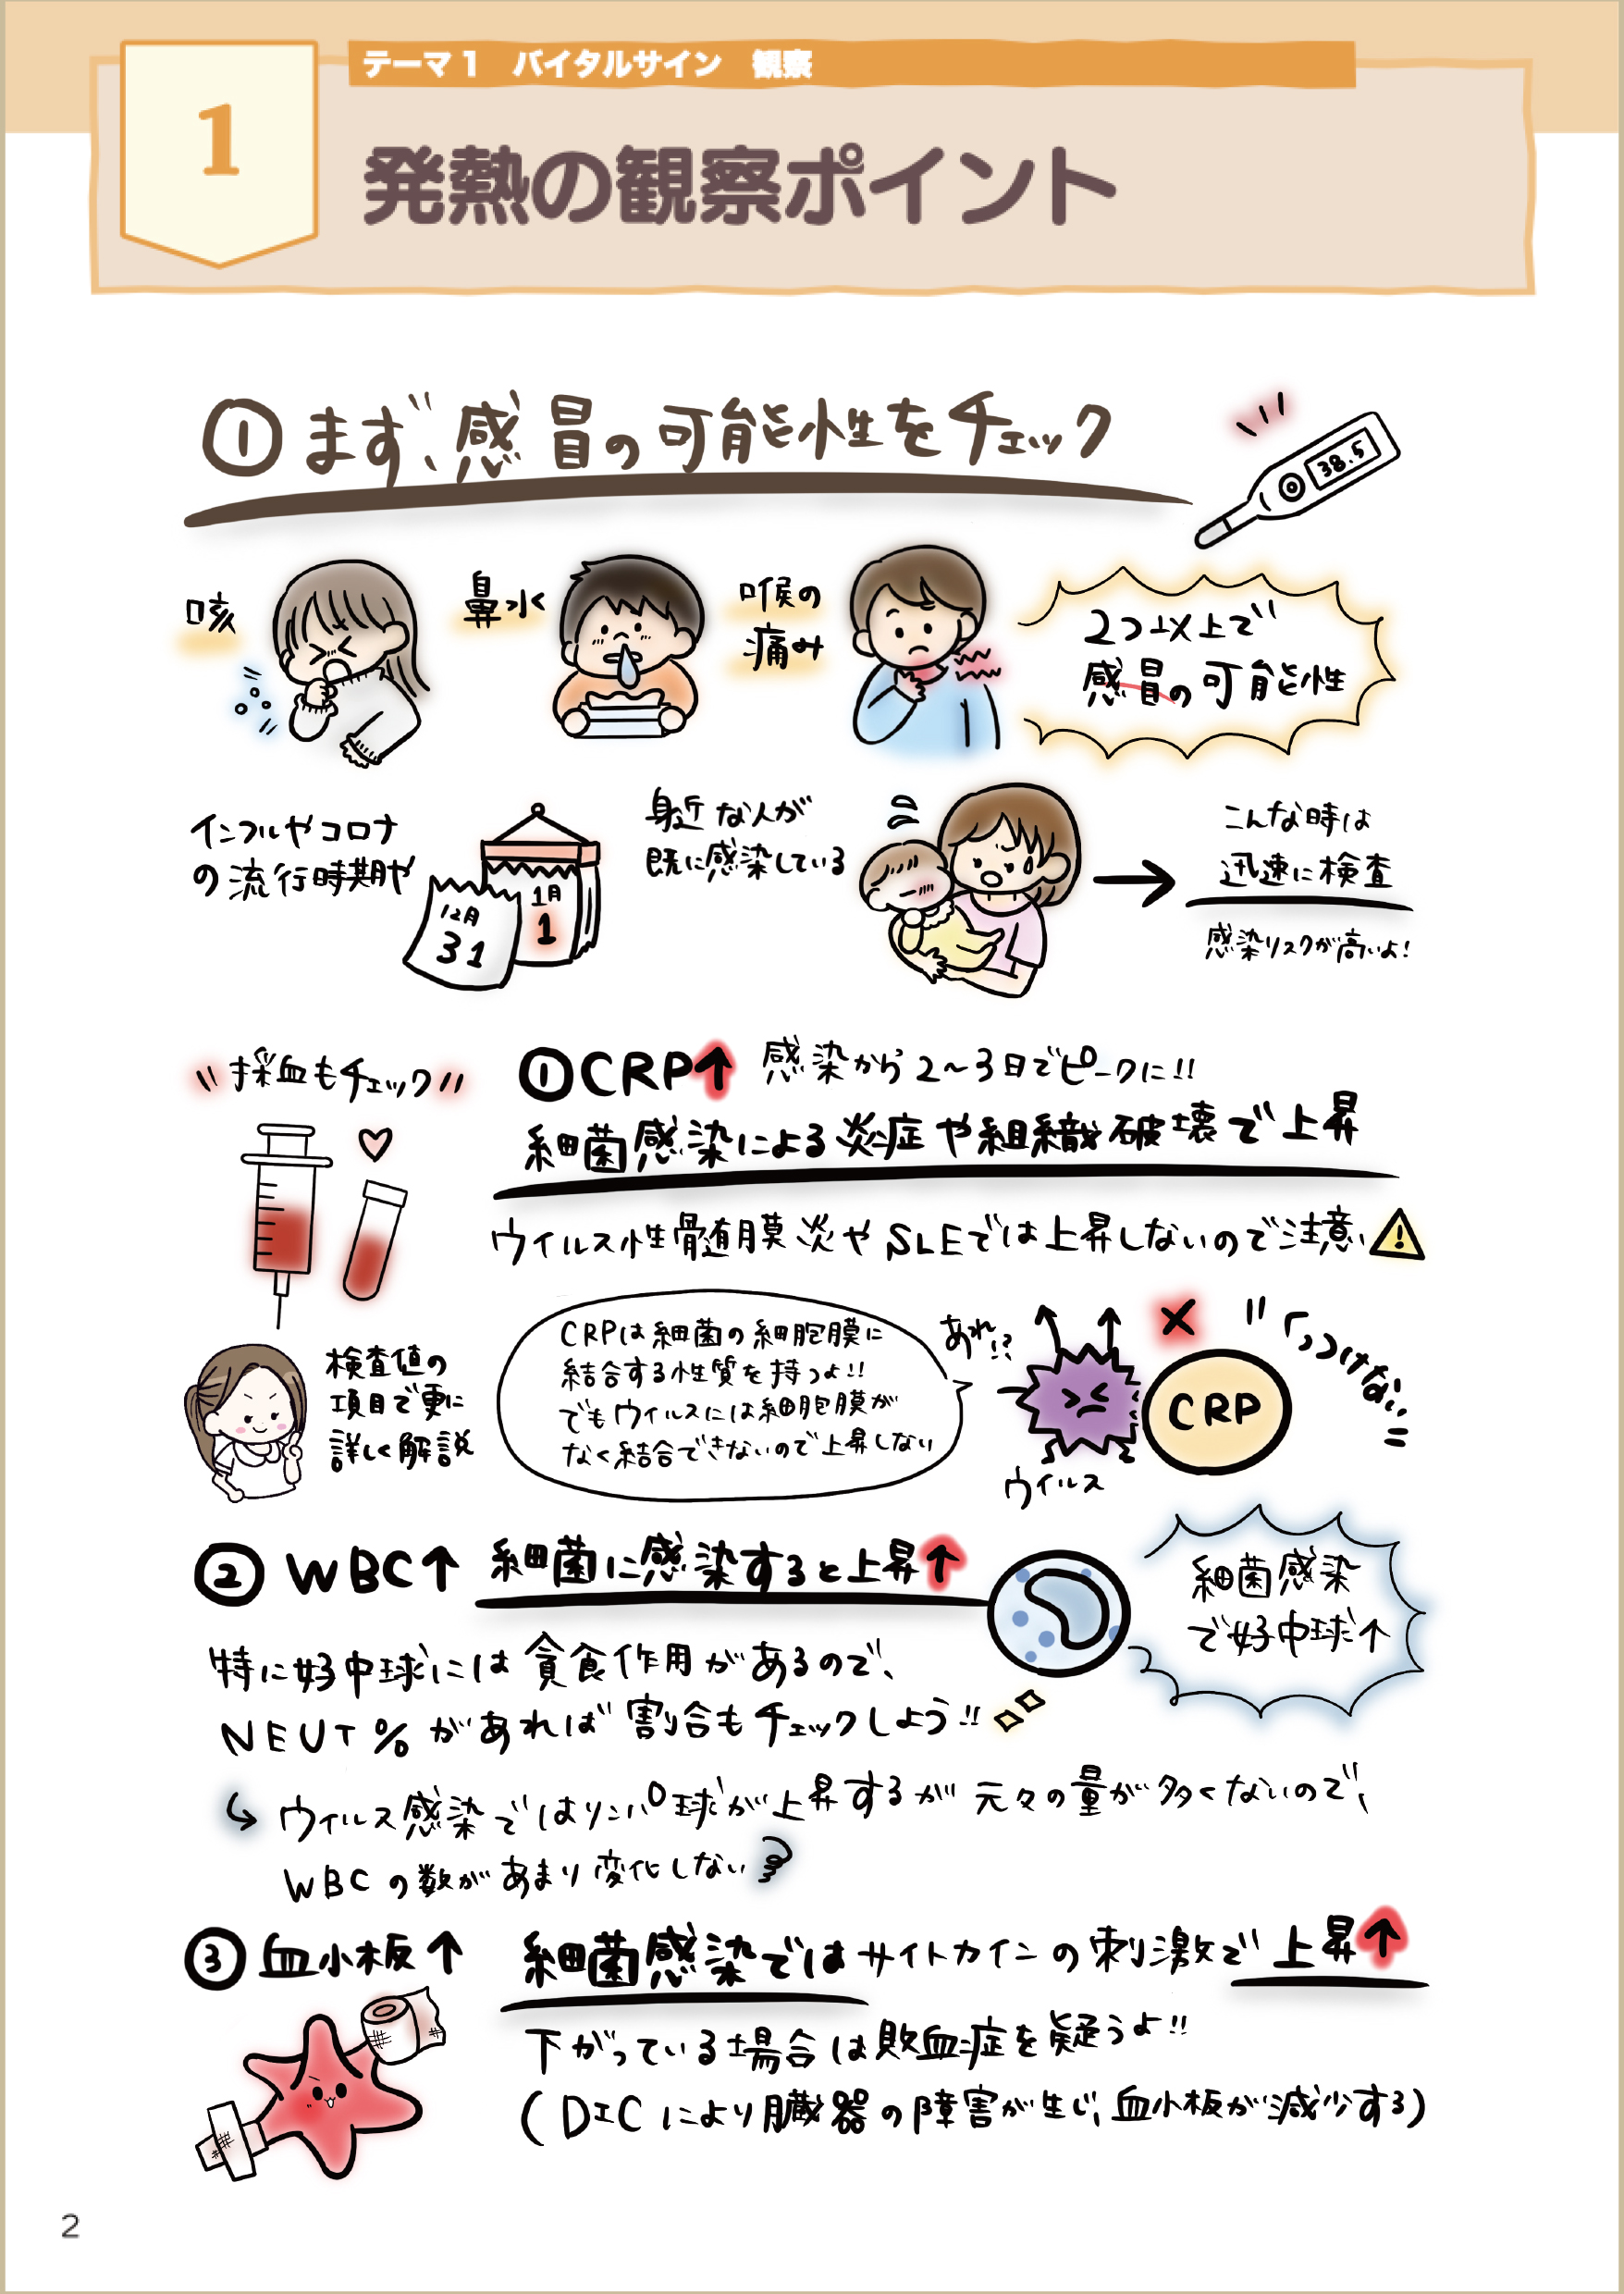 1
テーマ1 バイタルサイン 観察
発熱の観察ポイント
①まず、感冒の可能性をチェック
38.5
咳
鼻水
喉の
痛み
2つ以上で
感冒の可能性
インフルやコロナ
の流行時期や
12月
31
1月
1
身近な人が
既に感染している
→
こんな時は
迅速に検査
感染リスクが高いよ!
採血もチェック
①CRP↑ 感染から2〜3日でピークに!!
細菌感染による炎症や組織破壊で上昇
ウイルス性髄膜炎やSLEでは上昇しないので注意
検査値の
項目で更に
詳しく解説
CRPは細菌の細胞膜に
結合する性質を持つよ!!
でもウイルスには細胞膜が
なく結合できないので上昇しない
あれ!?
ウイルス
CRP
くっつけない
②WBC↑ 細菌に感染すると上昇↑
細菌感染
で好中球↑
特に好中球には貪食作用があるので、
NEUT%があれば割合もチェックしよう!!
↳ウイルス感染ではリンパ球が上昇するが元々の量が多くないので、
WBCの数があまり変化しない
③血小板↑ 細菌感染ではサイトカインの刺激で上昇↑
下がっている場合は敗血症を疑うよ!!
(DICにより臓器の障害が生じ、血小板が減少する)
2